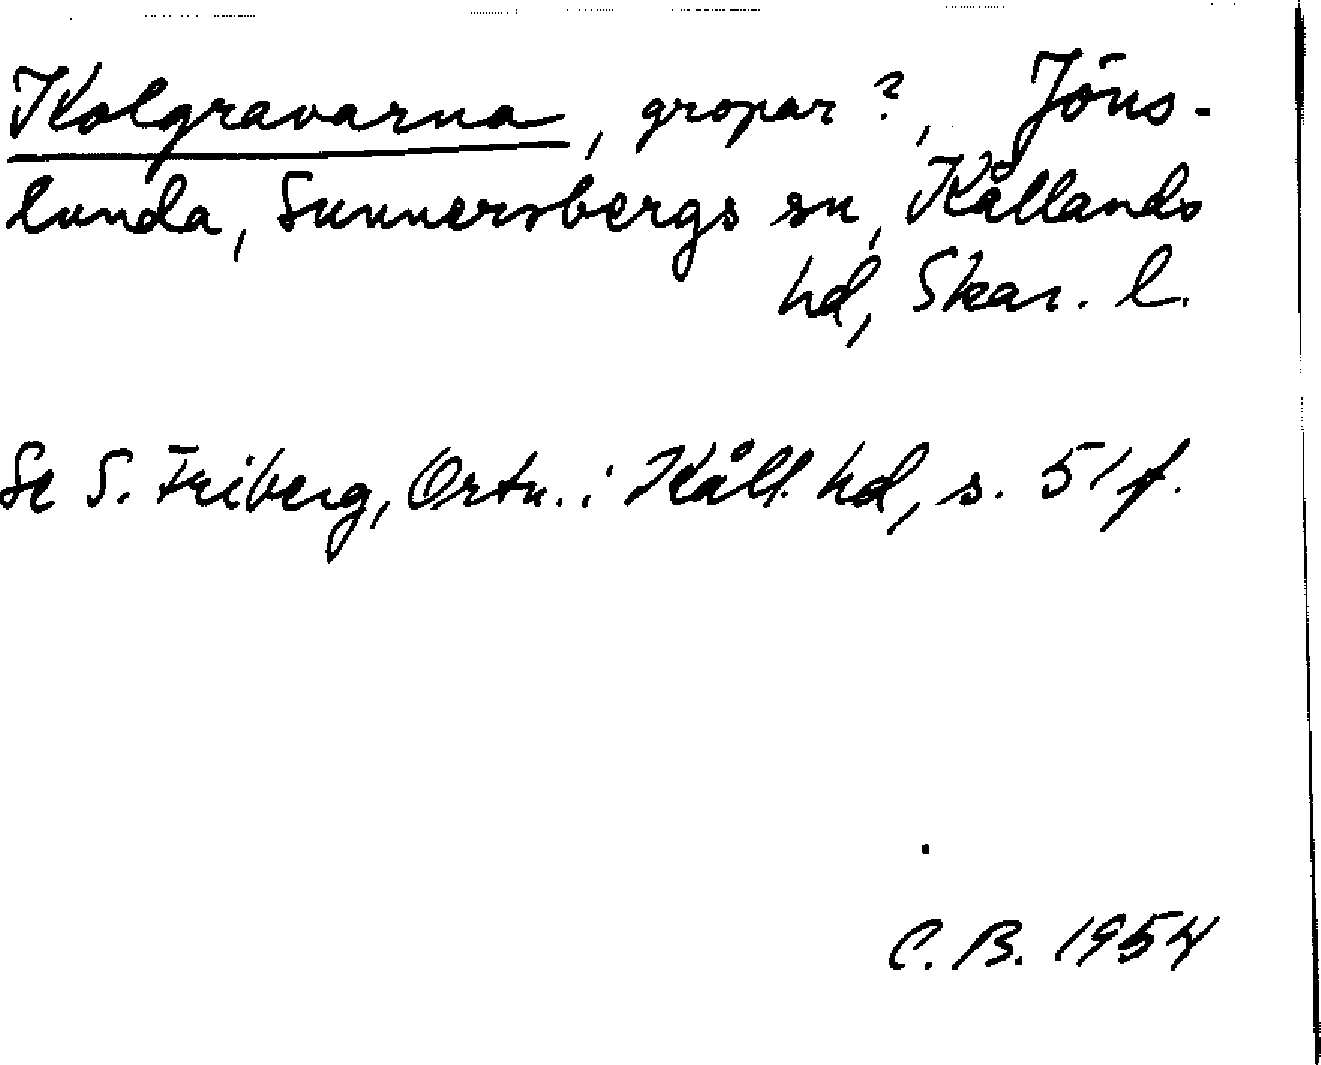 Kolgravarna, gropar?, Jöns-
lunda, Sunnersbergs sn, Kållands
hd, Skar. l.
Se S. Friberg, Ortn. i Kåll. hd, s. 51 f.
C. B. 1954